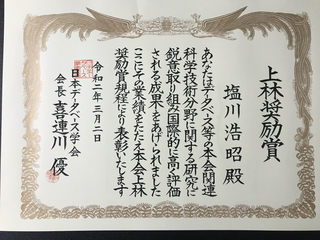 上林奨励賞
塩川浩昭殿
あなたはデータベース等の本会関連
科学技術分野に関する研究に
鋭意取り組み国際的に高く評価
される成果をあげられました
ここにその業績をたたえ本会上林
奨励賞規程により表彰いたします
令和二年三月二日
日本データベース学会
会長 喜連川 優